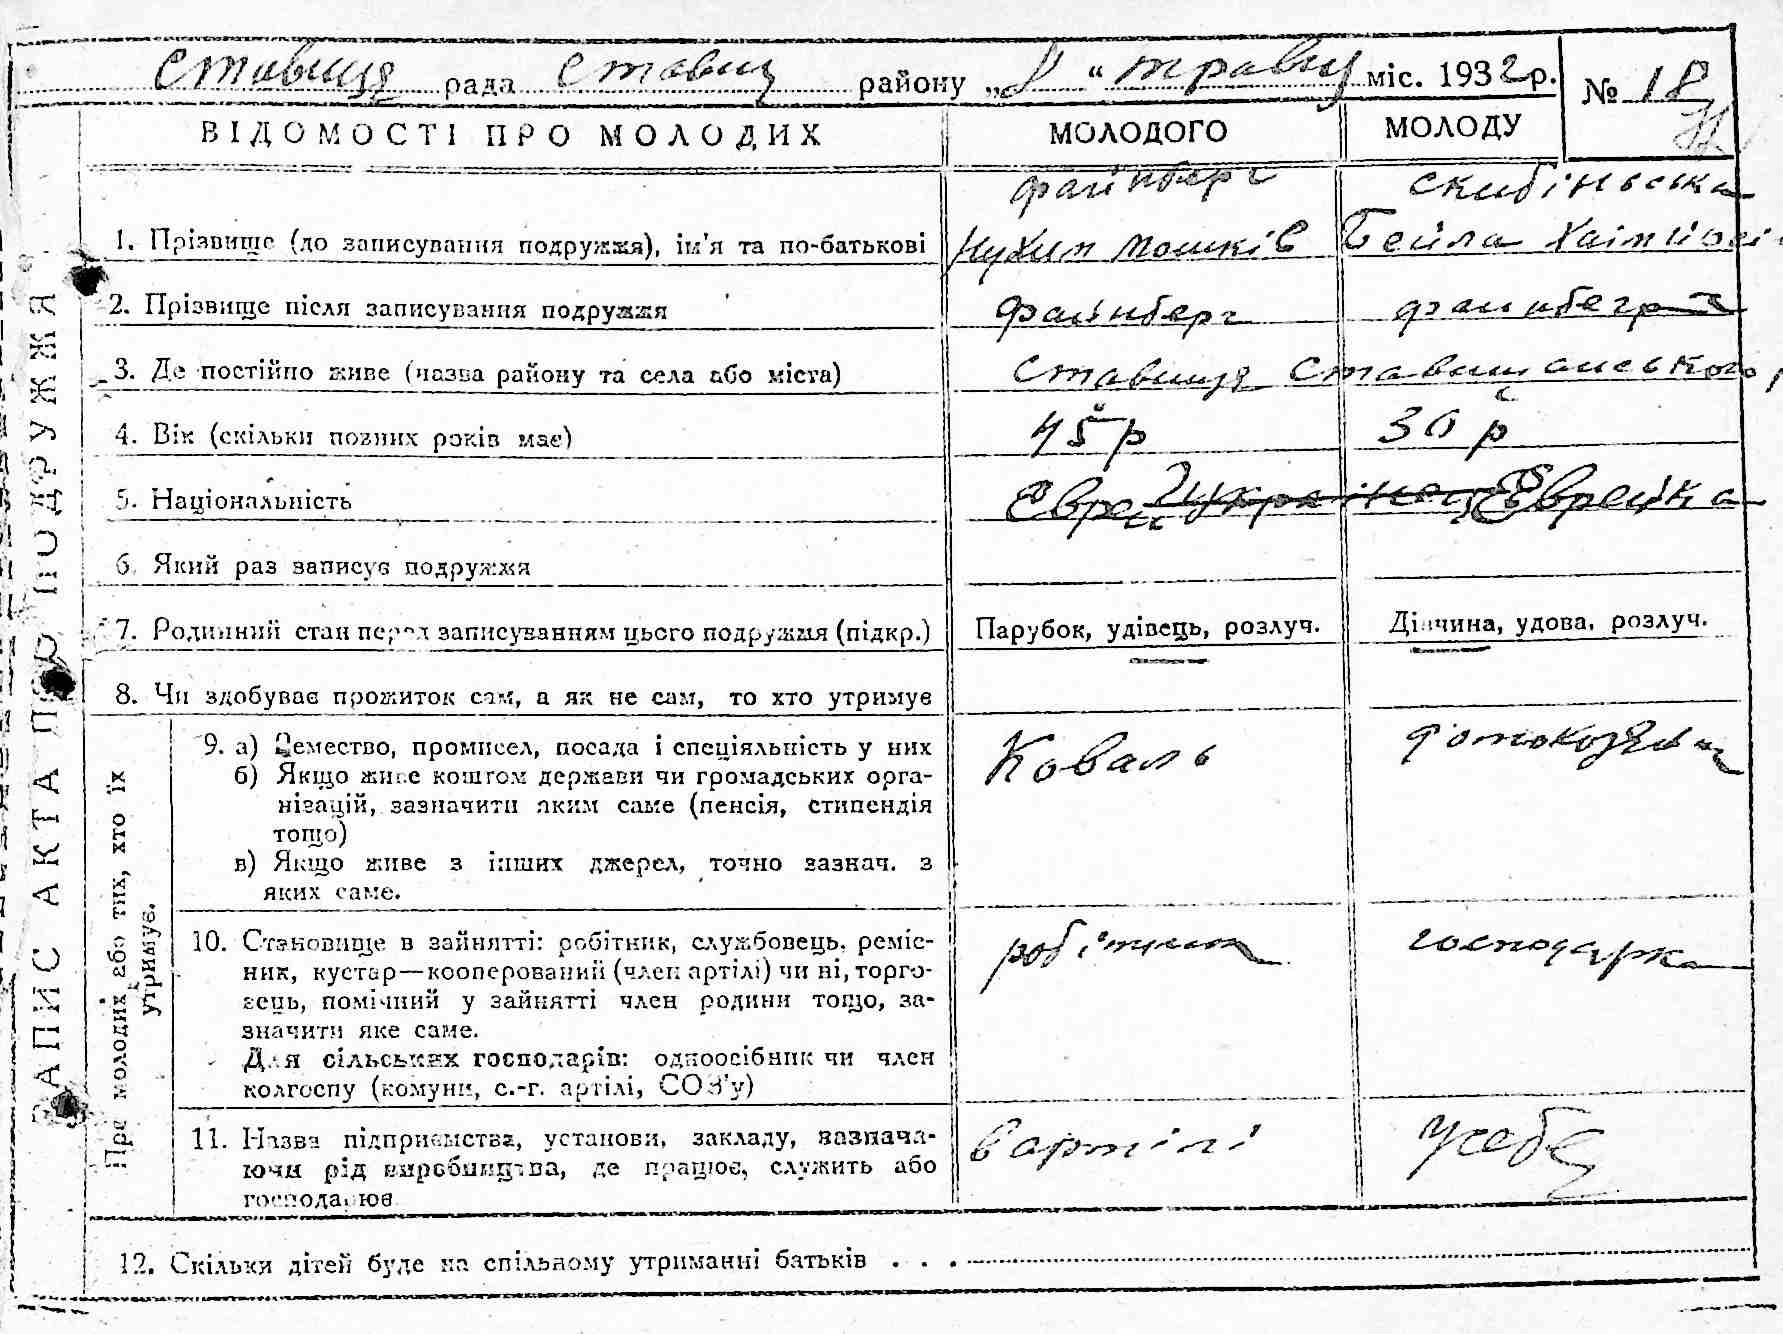 Ставище рада Ставищ району „8 “ травня міс. 1932 р. № 18
ВІДОМОСТІ ПРО МОЛОДИХ МОЛОДОГО МОЛОДУ
Файнберг Скибіньська
1. Прізвище (до записування подружжя), ім’я та по-батькові Нухим Мошків Бейла Хаімівні
2. Прізвище після записування подружжя Файнберг Файнберг
3. Де постійно живе (назва району та села або міста) Ставище Ставищанського р
4. Вік (скільки повних років має) 45 р 30 р
5. Національність Еврей українец Еврейка
6. Який раз записує подружжя
7. Родинний стан перед записуванням цього подружжя (підкр.) Парубок, удівець, розлуч. Дівчина, удова, розлуч.
8. Чи здобуває прожиток сам, а як не сам, то хто утримує
9. а) Ремество, промисел, посада і спеціяльність у них Коваль домохозяйк
б) Якщо живе коштом держави чи громадських орга-
нізацій, зазначити яким саме (пенсія, стипендія
тощо)
в) Якщо живе з інших джерел, точно зазнач. з
яких саме.
10. Становище в зайнятті: робітник, службовець, реміс- робітник господарка
ник, кустар—кооперований (член артілі) чи ні, торго-
вець, помічний у зайнятті член родини тощо, за-
значити яке саме.
Для сільських господарів: одноосібник чи член
колгоспу (комуни, с.-г. артілі, СОЗ’у)
11. Назва підприємства, установи, закладу, зазнача- в артілі у себе
ючи рід виробництва, де працює, служить або
господарює
12. Скільки дітей буде на спільному утриманні батьків . . .
ЗАПИС АКТА ПРО ПОДРУЖЖЯ
Про молодих або тих, хто їх
утримує.